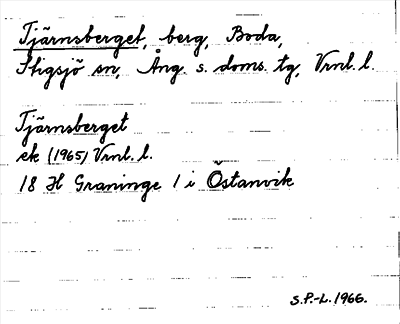 Tjärnsberget, berg, Boda,
Stigsjö sn, Ång. s. doms. tg, Vrnl. l.
Tjärnsberget
ek (1965) Vrnl. l.
18 H Graninge 1 i Östanvik
S.P.-L. 1966.